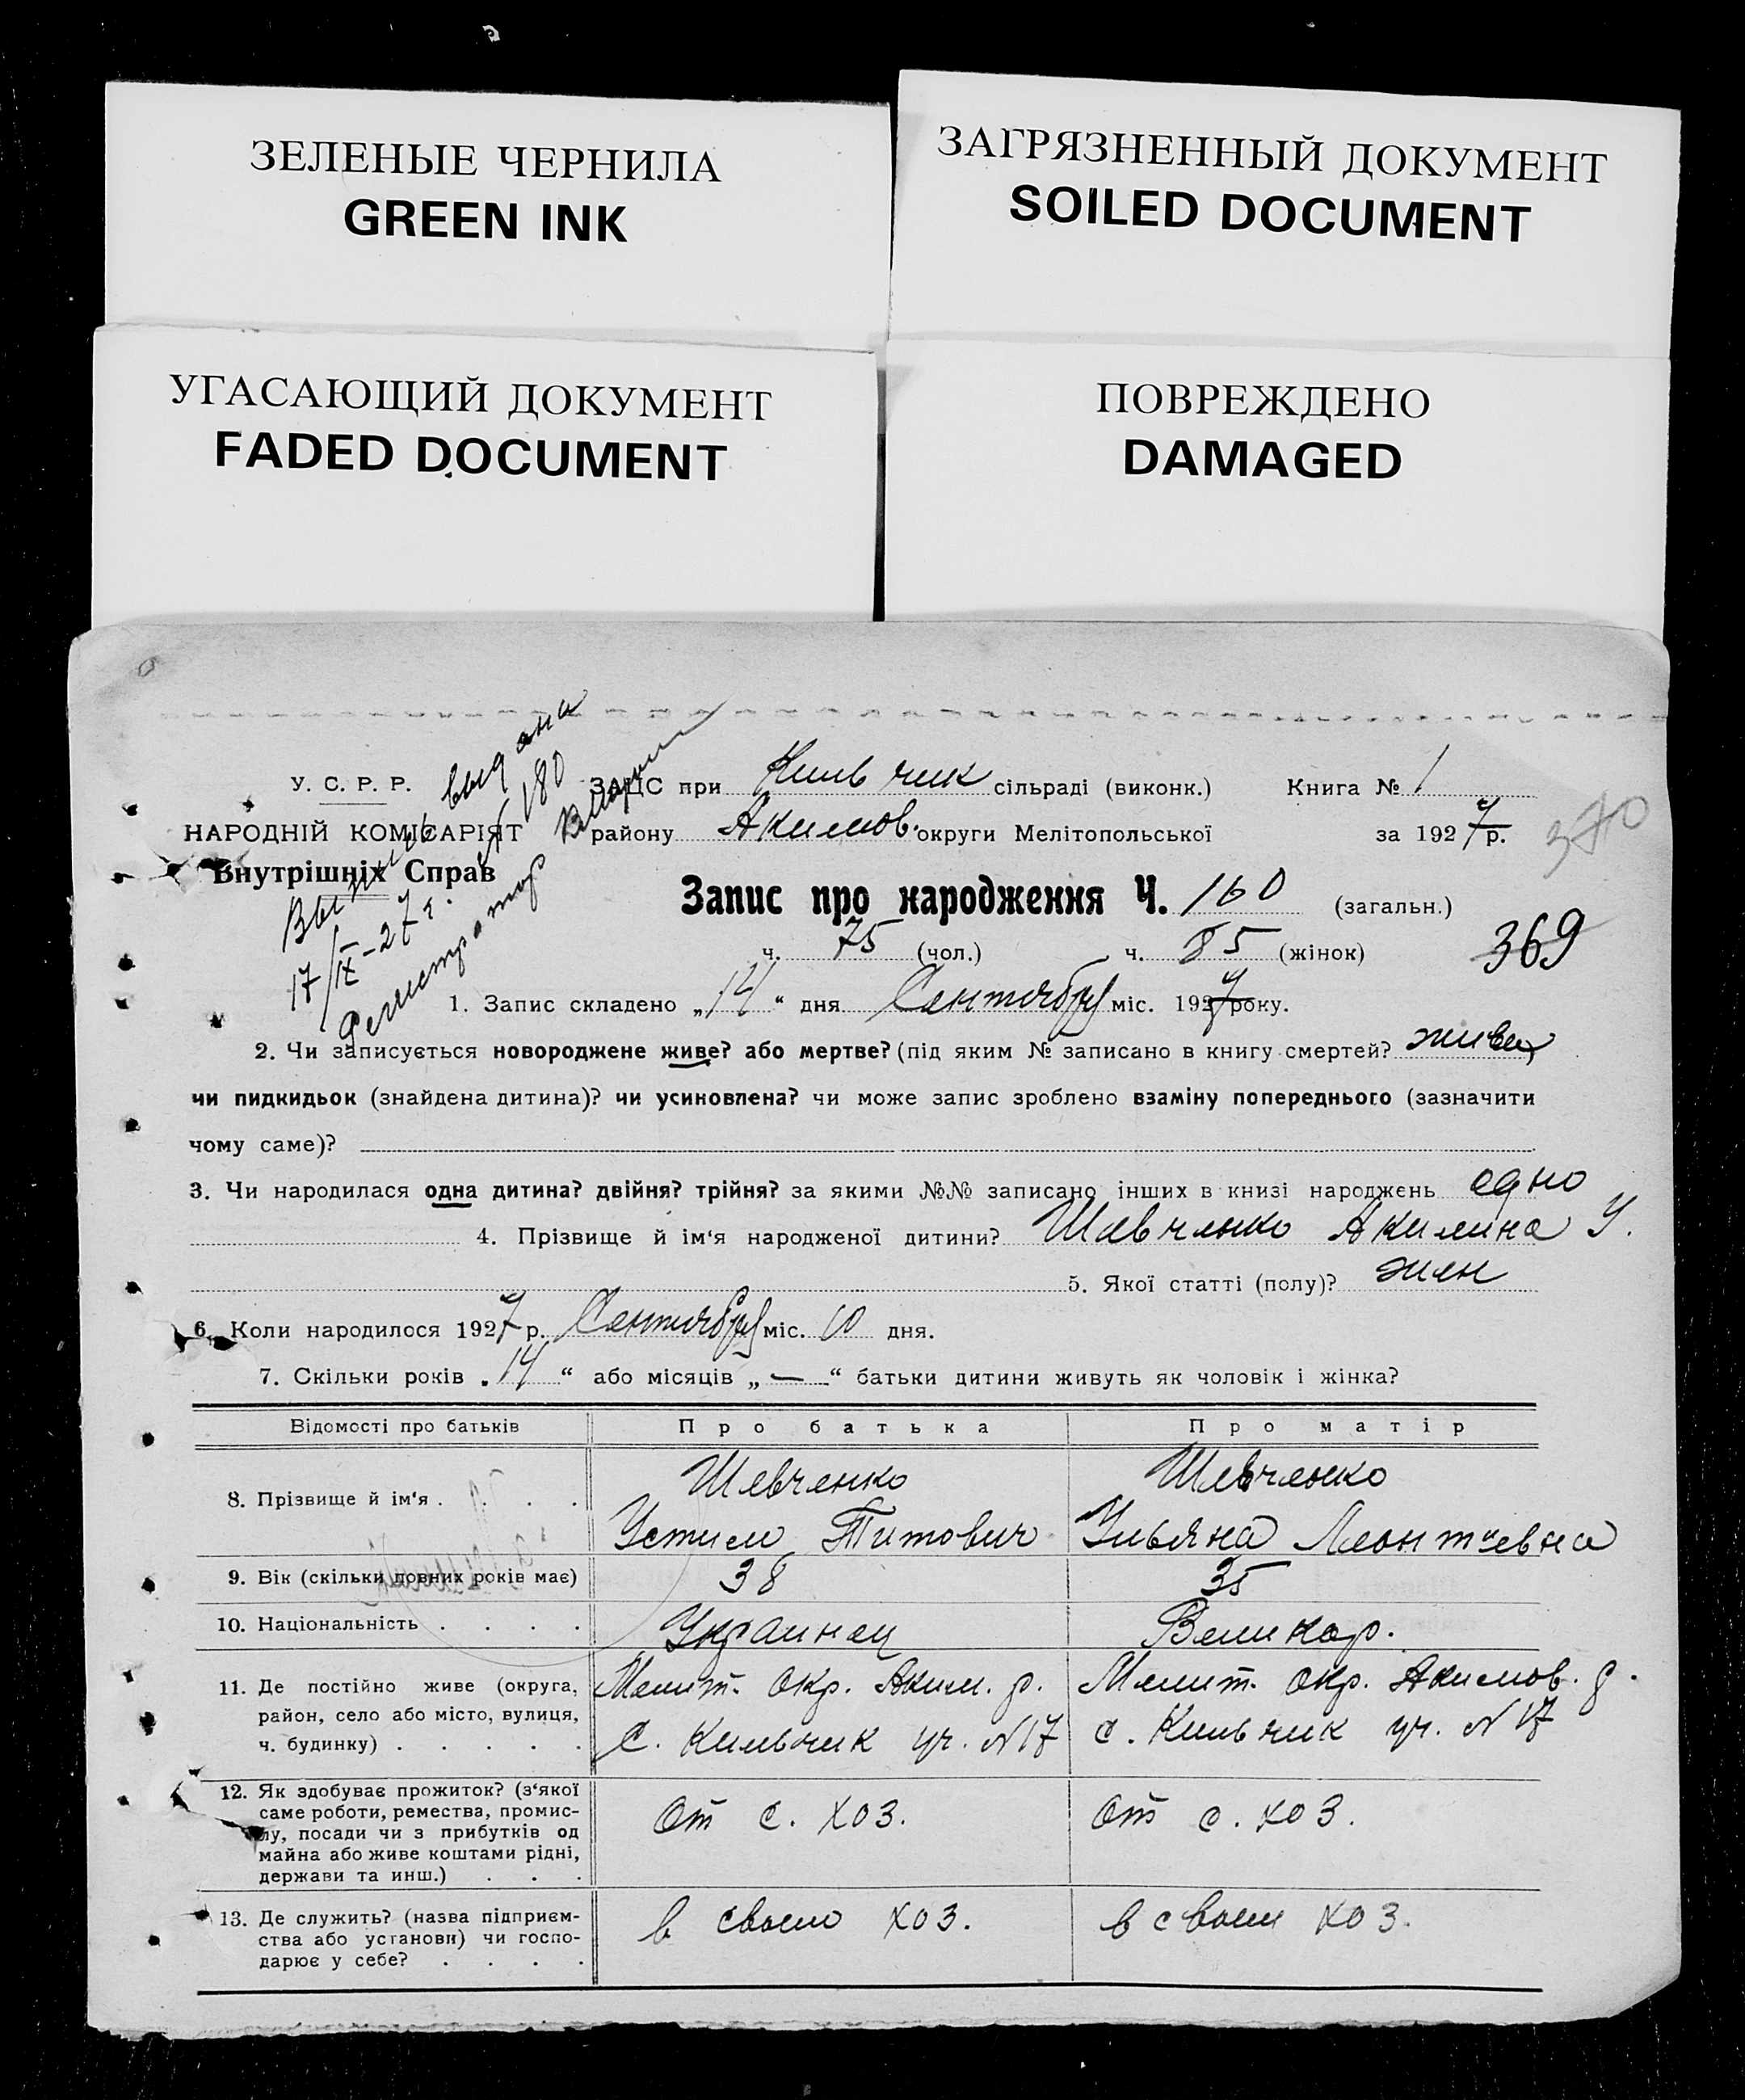 ЗЕЛЕНЫЕ ЧЕРНИЛА
GREEN INK
ЗАГРЯЗНЕННЫЙ ДОКУМЕНТ
SOILED DOCUMENT
УГАСАЮЩИЙ ДОКУМЕНТ
FADED DOCUMENT
ПОВРЕЖДЕНО
DAMAGED
У. С. Р. Р.
НАРОДНІЙ КОМІСАРІЯТ
Внутрішніх Справ
Выпись выдана
17/IX-27 г. N 180
Регистратор
ЗАЦС при Кильчик сільраді (виконк.) Книга № 1
району Акимов. округи Мелітопольської за 1927 р.
370
Запис про народження Ч. 160 (загальн.)
ч. 75 (чол.) ч. 85 (жінок)
369
1. Запис складено „14“ дня Сентября міс. 1927 року.
2. Чи записується новороджене живе? або мертве? (під яким № записано в книгу смертей? живое
чи пидкидьок (знайдена дитина)? чи усиновлена? чи може запис зроблено взаміну попереднього (зазначити
чому саме)?
3. Чи народилася одна дитина? двійня? трійня? за якими №№ записано інших в книзі народжень одно
4. Прізвище й ім‘я народженої дитини? Шевченко Акилина У.
5. Якої статті (полу)? жен
6. Коли народилося 1927 р. Сентября міс. 10 дня.
7. Скільки років „14“ або місяців „—“ батьки дитини живуть як чоловік і жінка?
Відомості про батьків Про батька Про матір
8. Прізвище й ім‘я . . . .
Шевченко
Устим Титович
Шевченко
Ульяна Леонтиевна
9. Вік (скільки повних років має) 38 35
10. Національність . . . . Украинец Великор.
11. Де постійно живе (округа,
район, село або місто, вулиця,
ч. будинку) . . . . .
Мелит. окр. Аким. р.
с. Кильчик уч. N 17
Мелит. окр. Акимов. р.
с. Кильчик уч. N 17
12. Як здобуває прожиток? (з‘якої
саме роботи, ремества, промис-
лу, посади чи з прибутків од
майна або живе коштами рідні,
держави та инш.) . . .
От с. хоз.
От с. хоз.
13. Де служить? (назва підприєм-
ства або установи) чи госпо-
дарює у себе? . . . .
в своем хоз.
в своем хоз.